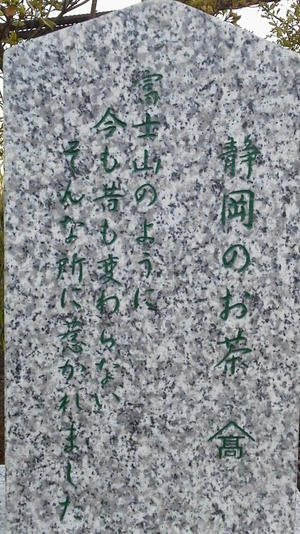 静岡のお茶 髙
富士山のように
今も昔も変わらない
そんな所に惹かれました